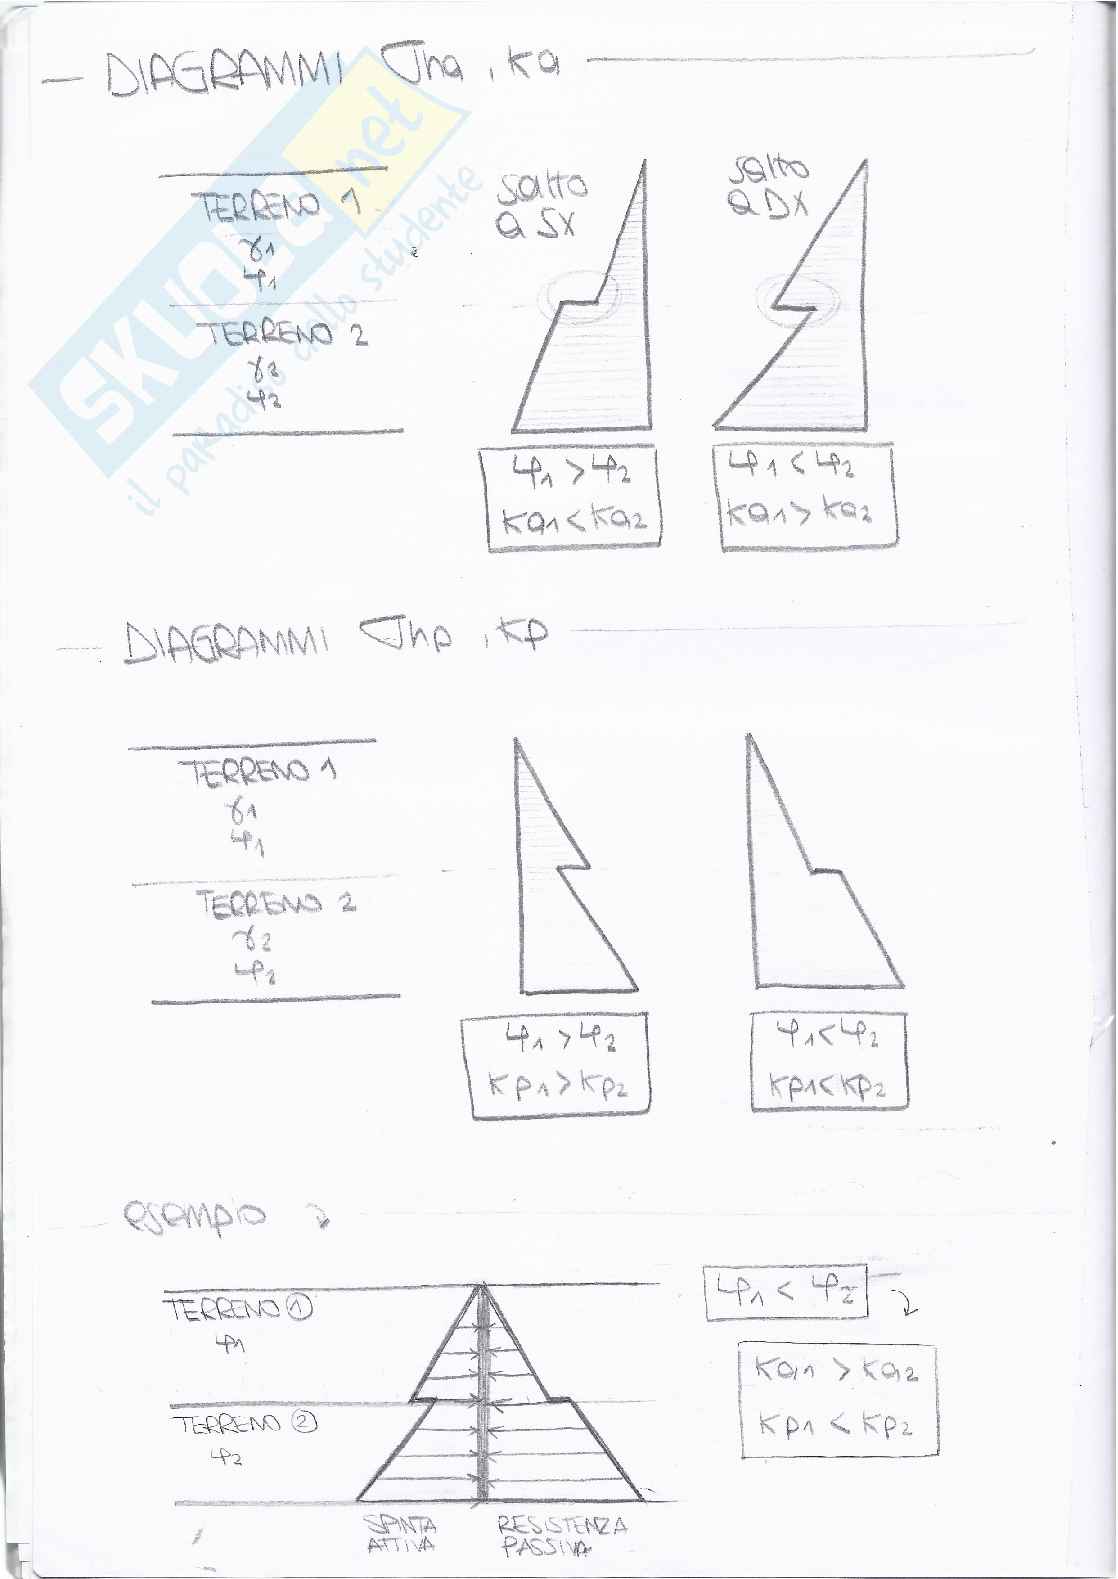 — DIAGRAMMI σha , ka
TERRENO 1
γ1
φ1
TERRENO 2
γ2
φ2
salto
a SX
salto
a DX
φ1 > φ2
ka1 < ka2
φ1 < φ2
ka1 > ka2
— DIAGRAMMI σhp , kp
TERRENO 1
γ1
φ1
TERRENO 2
γ2
φ2
φ1 > φ2
kp1 > kp2
φ1 < φ2
kp1 < kp2
esempio
TERRENO ①
φ1
TERRENO ②
φ2
SPINTA
ATTIVA
RESISTENZA
PASSIVA
φ1 < φ2
ka1 > ka2
kp1 < kp2
SKUOLA.net
il paradiso dello studente